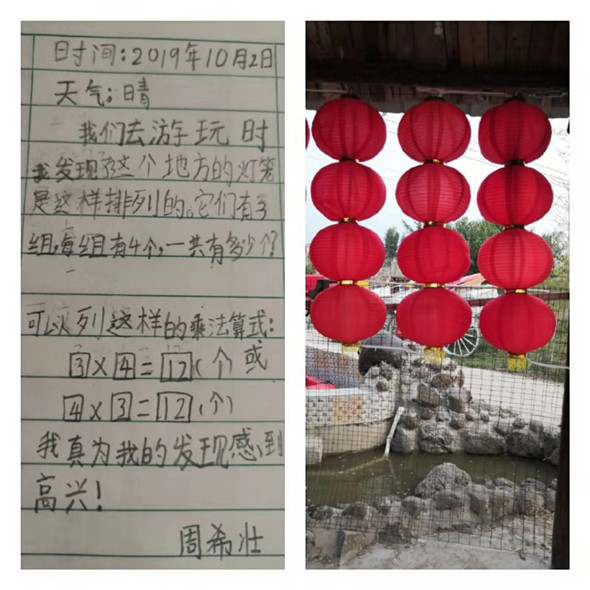 日时间:2019年10月2日
天气:晴
我们去游玩时
我发现这个地方的灯笼
是这样排列的。它们有3
组,每组有4个,一共有多少个?
可以列这样的乘法算式:
3×4=12(个)或
4×3=12(个)
我真为我的发现感到
高兴!
周希壮